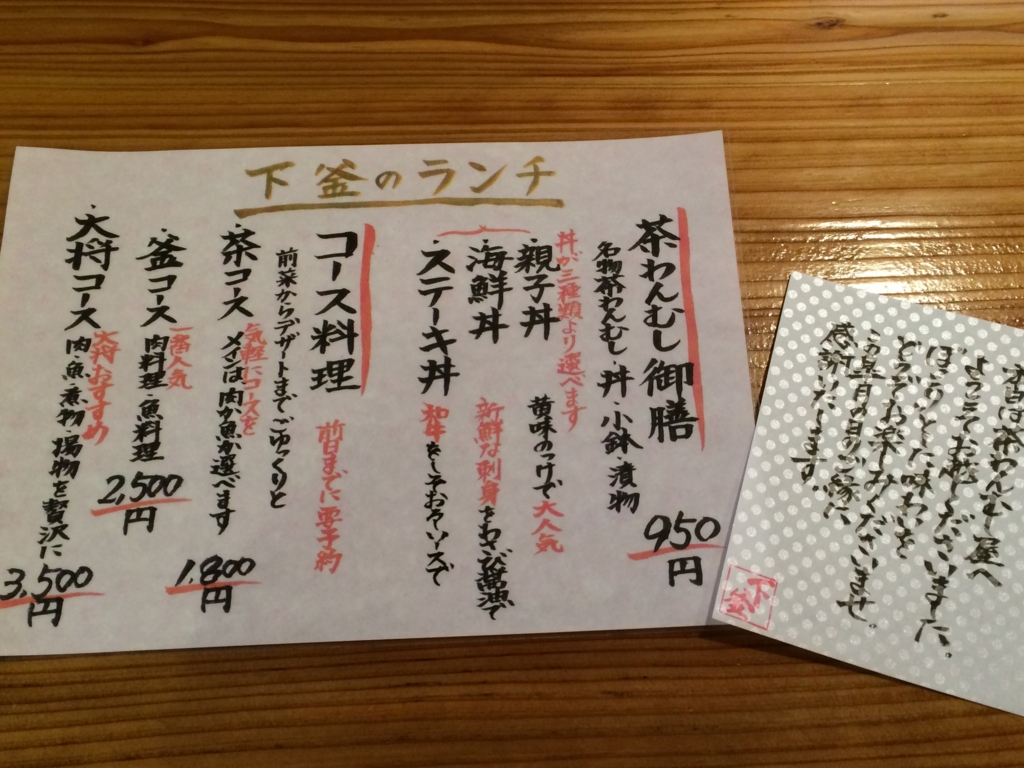 下釜のランチ
茶わんむし御膳
950円
名物茶わんむし・丼・小鉢・漬物
丼が三種類より選べます
・親子丼 黄味のっけで大人気
・海鮮丼 新鮮な刺身をわさび醤油で
・ステーキ丼 和牛をしそおろしソースで
コース料理
前日までに要予約
前菜からデザートまでごゆっくりと
・茶コース
気軽にコースを
メインは肉か魚が選べます
1,800円
・釜コース
一番人気
肉料理・魚料理
2,500円
・大将コース
大将おすすめ
肉・魚・煮物・揚物を贅沢に
3,500円
本日は茶わんむし屋へ
ようこそお越しくださいました。
ほっとした味わいを
どうぞお楽しみくださいませ。
この日のご縁に
感謝いたします。
下釜